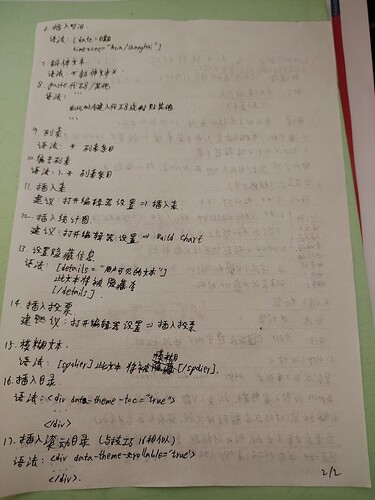 6. 插入时间
语法: [date=日期
timezone="Asia/Shanghai"]
7. 斜体文本
语法 *斜体文本*
8. 代码/其他
语法:
```
此处键入代码或粘贴其他
```
9. 列表
语法: * 列表条目
10. 编号列表
语法: 1. * 列表条目
11. 插入表
建议: 打开编辑器设置 => 插入表
12. 插入统计图
建议: 打开编辑器设置 => Build Chart
13. 设置隐藏信息
语法: [details="用户可见的文本"]
此文本将被隐藏
[/details]
14. 插入投票
建议: 打开编辑器设置 => 插入投票
15. 模糊文本
语法: [spolier]此文本将被模糊[/spolier].
16. 插入目录
语法: <div data-theme-toc="true">
...
</div>
17. 插入滚动目录 (与技巧16相似)
语法: <div data-theme-scrollable="true">
...
</div>.
2/2